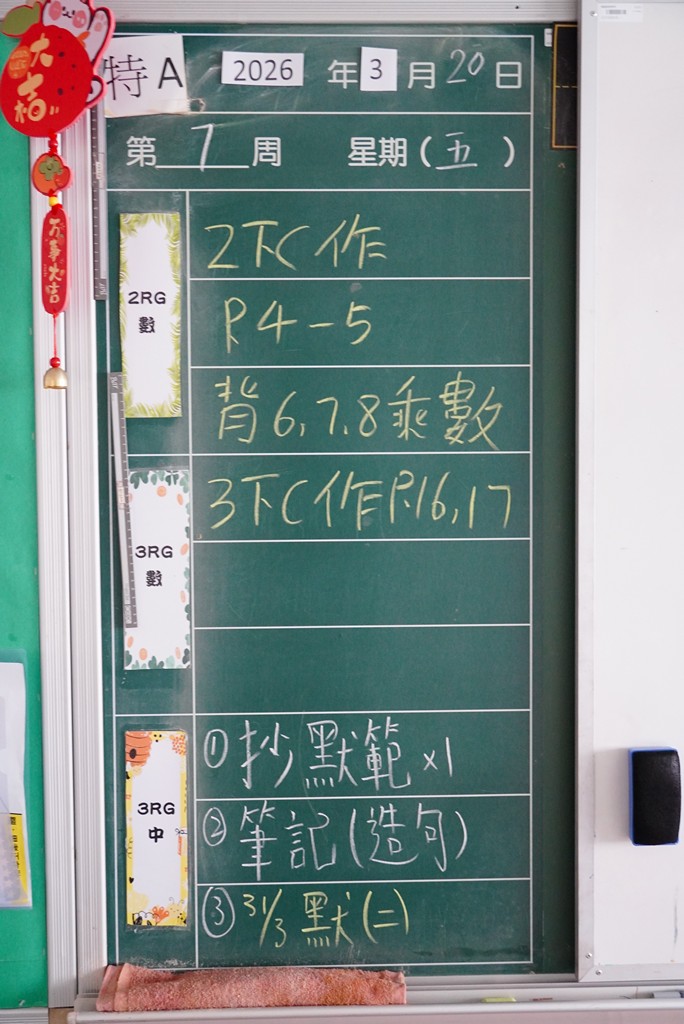 大吉
萬事大吉
特A
2026 年 3 月 20 日
第 7 周 星期(五)
2RG
數
2下C作
P.4-5
背6,7.8乘數
3RG
數
3下C作P.16,17
3RG
中
①抄默範x1
②筆記(造句)
③31/3默(二)